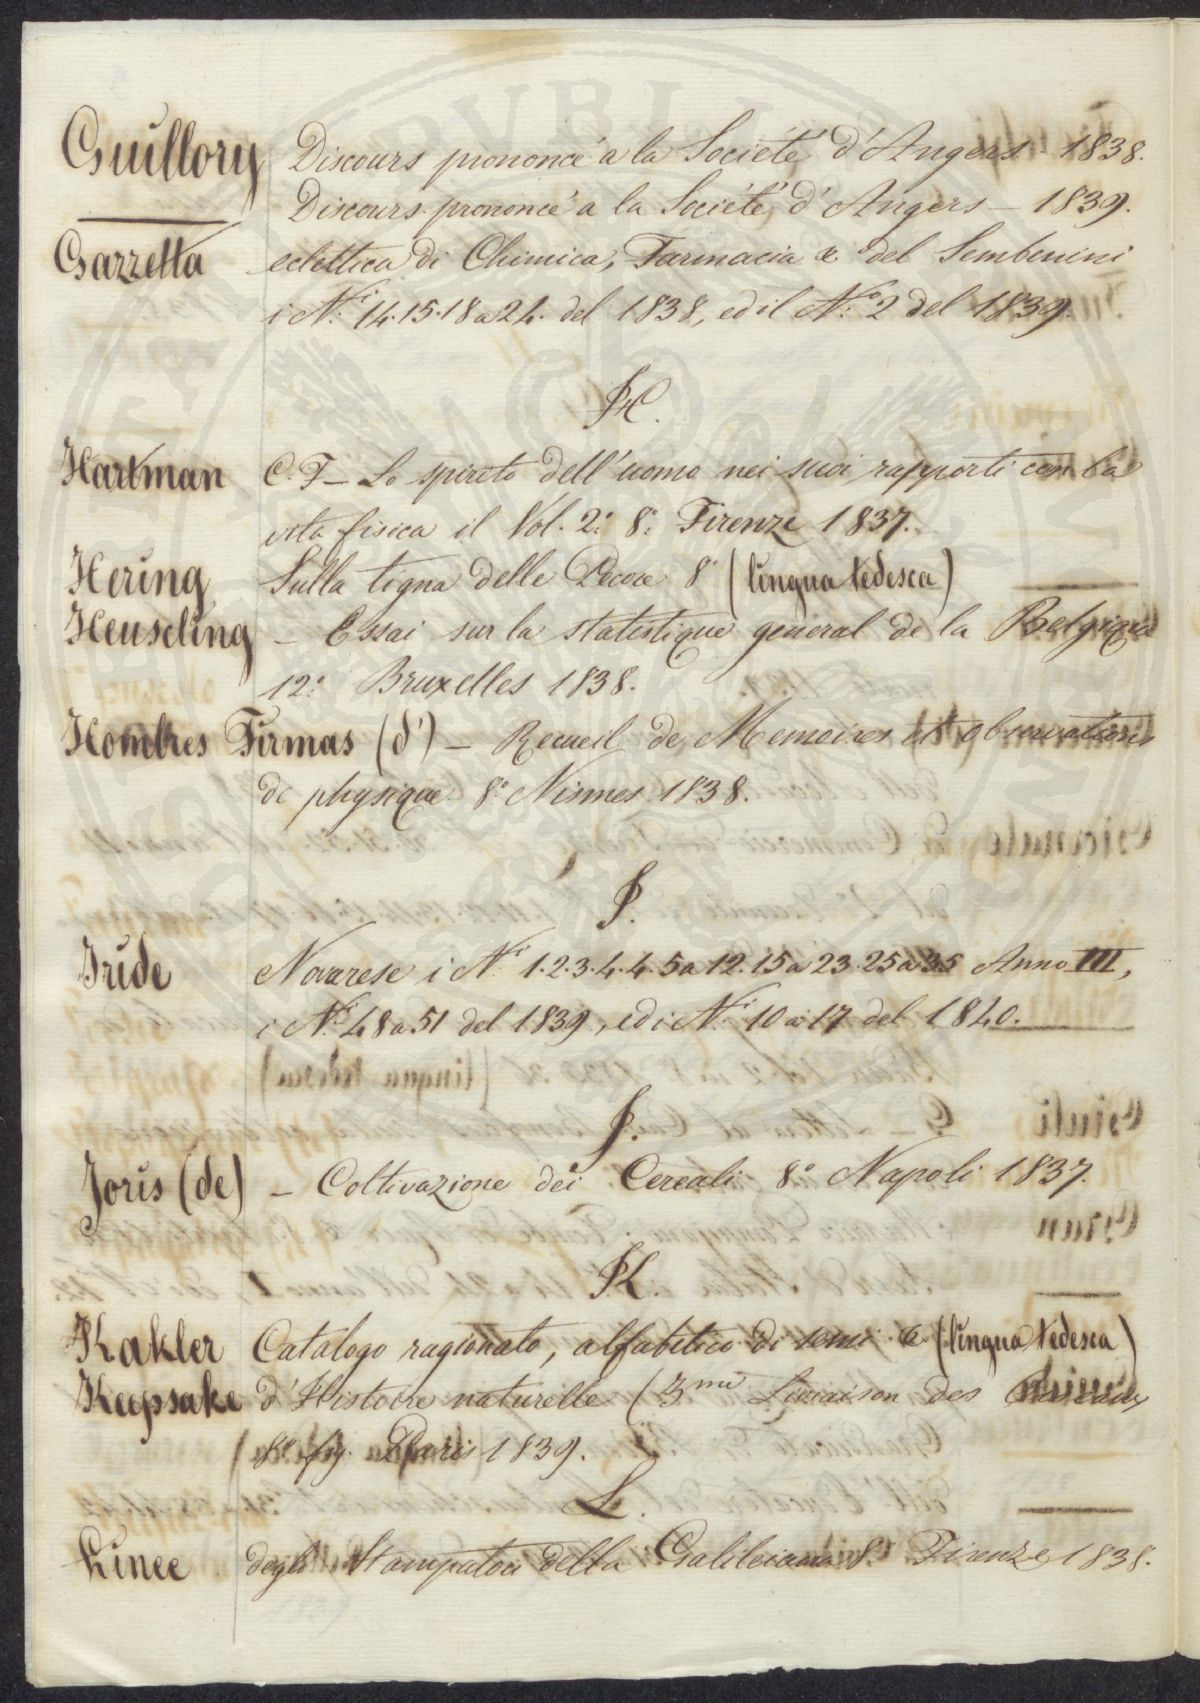 Guillory Discours prononcé a la Societé d'Angers - 1838.
Discours prononcé a la Societé d'Angers - 1839.
Gazzetta eclettica di Chimica, Farmacia & del Sembenini
i N.i 14.15.18 a 24. del 1838, ed il N.o 2 del 1839.
H.
Hartman C. F - Lo spirito dell'uomo nei suoi rapporti con la
vita fisica il Vol. 2.o 8.o Firenze 1837.
Hering Sulla tigna delle Pecore 8.o (lingua tedesca)
Heuscling - Essai sur la statistique general de la Belgique
12.o Bruxelles 1838.
Hombres Firmas (d') - Recueil de Memoires et observations
de physique 8.o Nismes 1838.
I.
Iride Novarese i N.i 1.2.3.4.4.5 a 12.15 a 23.25 a 35 Anno III,
i N.i 48 a 51 del 1839, ed i N.i 10 a 17 del 1840.
J.
Joris (de) - Coltivazione dei Cereali 8.o Napoli 1837.
K.
Kakler Catalogo ragionato, alfabetico di semi & (lingua tedesca)
Keepsake d'Histoire naturelle (3.me Livraison des
8.o fig. Paris 1839.
L.
Linee degli Stampatori della Galileiana 8.o Firenze 1838.